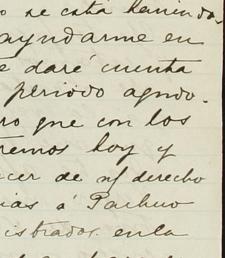 o se está haciendo
ayudarme en
e daré cuenta
periodo agudo.
ro que con los
remos hoy y
cer de sf derecho
ias á Pachuco
istrados en la